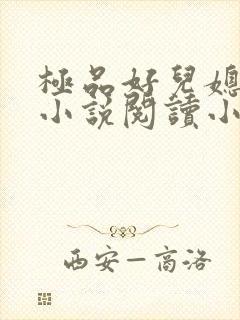 極品好兒媳
小說閱讀小
西安—高洛